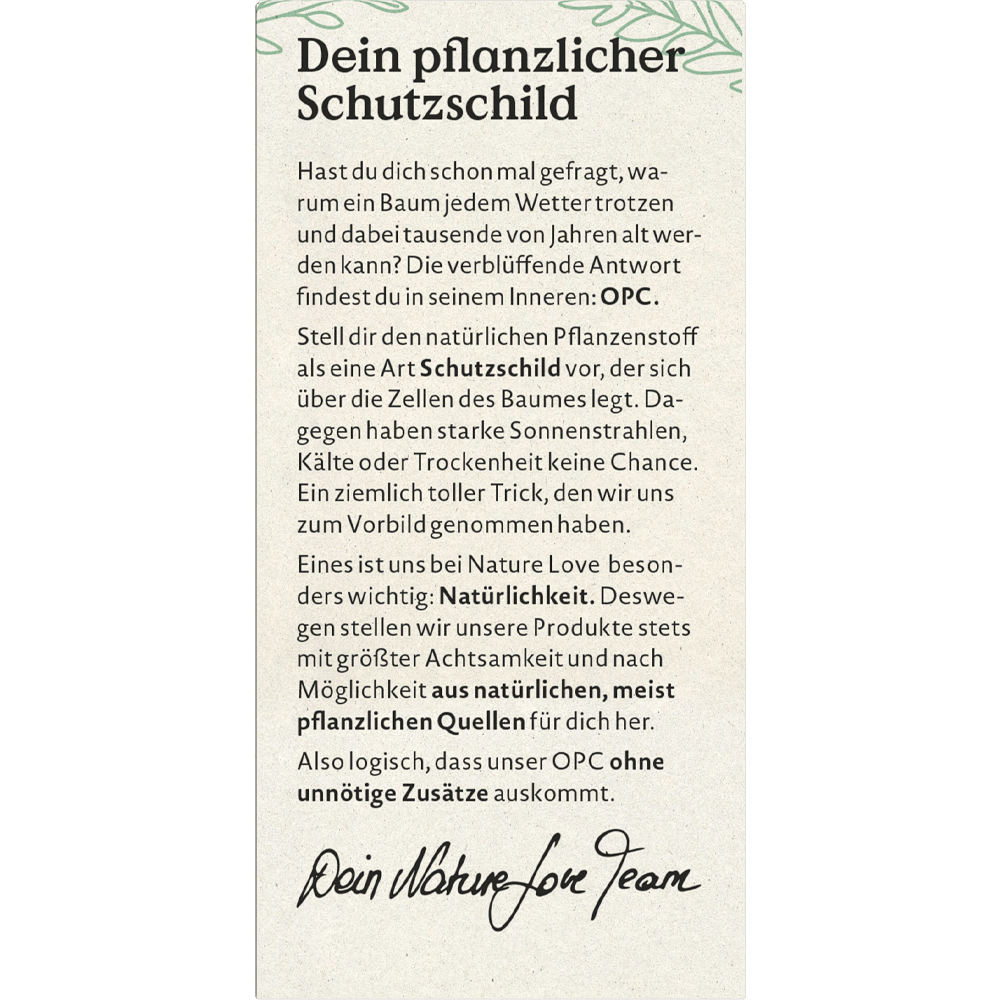 Dein pflanzlicher
Schutzschild
Hast du dich schon mal gefragt, wa-
rum ein Baum jedem Wetter trotzen
und dabei tausende von Jahren alt wer-
den kann? Die verblüffende Antwort
findest du in seinem Inneren: OPC.
Stell dir den natürlichen Pflanzenstoff
als eine Art Schutzschild vor, der sich
über die Zellen des Baumes legt. Da-
gegen haben starke Sonnenstrahlen,
Kälte oder Trockenheit keine Chance.
Ein ziemlich toller Trick, den wir uns
zum Vorbild genommen haben.
Eines ist uns bei Nature Love beson-
ders wichtig: Natürlichkeit. Deswe-
gen stellen wir unsere Produkte stets
mit größter Achtsamkeit und nach
Möglichkeit aus natürlichen, meist
pflanzlichen Quellen für dich her.
Also logisch, dass unser OPC ohne
unnötige Zusätze auskommt.
Dein Nature Love Team